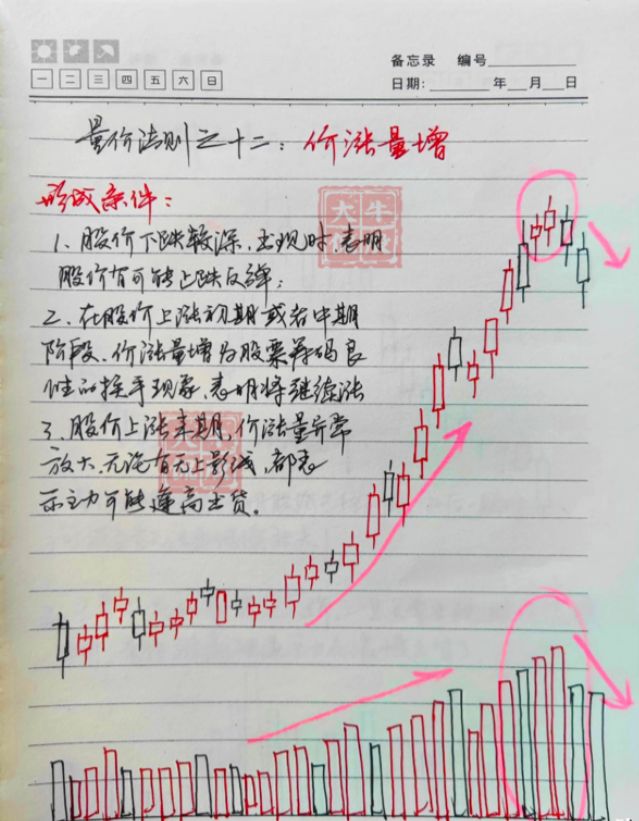 备忘录 编号
一 二 三 四 五 六 日
日期: 年 月 日
量价法则之十二：价涨量增
形成条件：
1、股价下跌较深，出现时，表明
股价有可能止跌反弹；
2、在股价上涨初期或者中期
阶段，价涨量增为股票筹码良
性的换手现象，表明将继续涨
3、股价上涨末期，价涨量异常
放大，无论有无上影线，都表
示主力可能逢高出货。
大牛
大牛